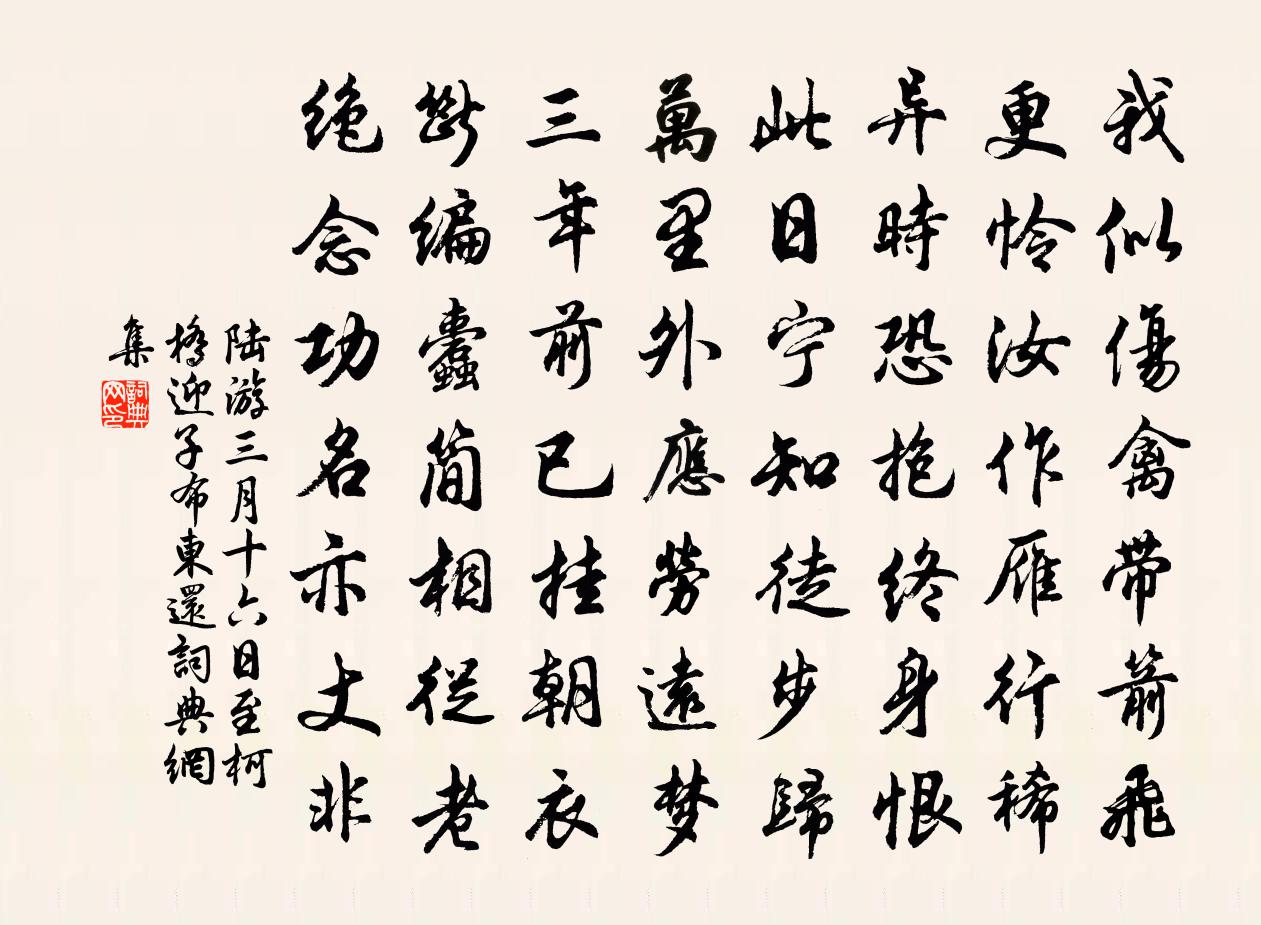 我似傷禽带箭飛
更怜汝作雁行稀
异時恐抱終身恨
此日宁知徒步歸
萬里外應勞遠梦
三年前已挂朝衣
斷編蠹簡相從老
絶念功名亦丈非
陆游三月十六日至柯
橋迎子布東還詞典網
集
詞典
网印